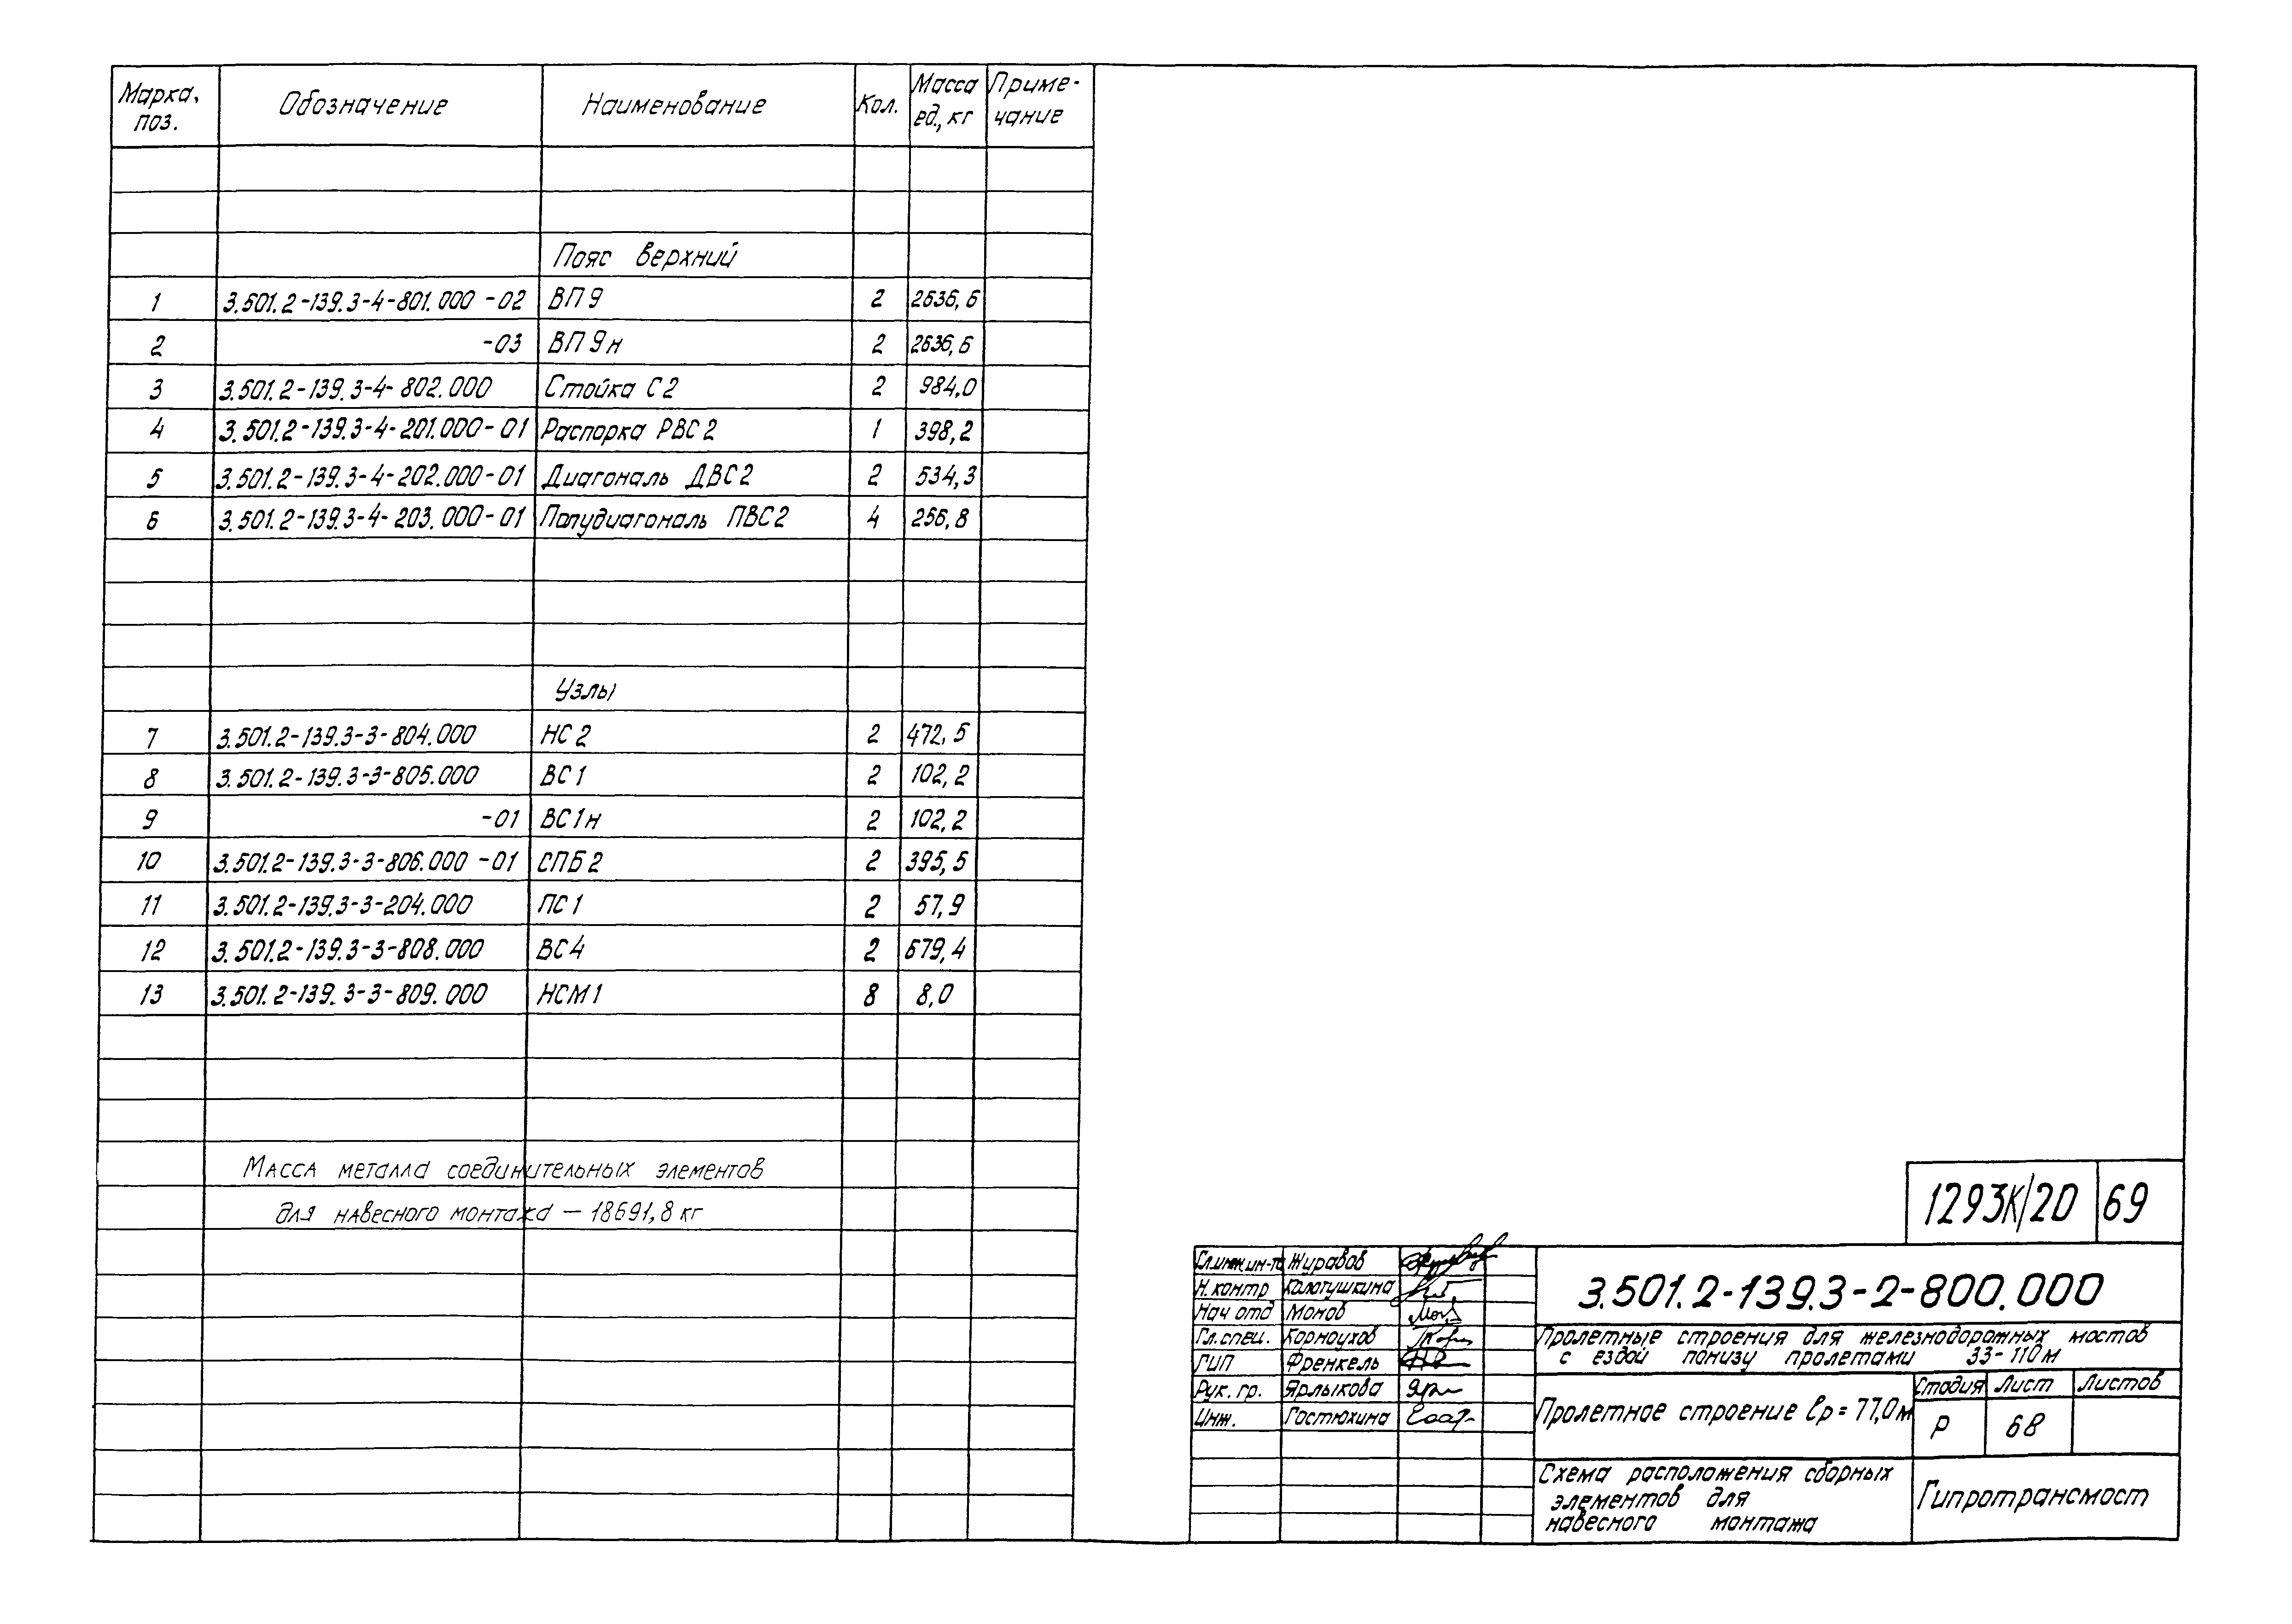 Марка, поз. Обозначение Наименование Кол. Масса ед., кг Приме-чание
Пояс верхний
1 3.501.2-139.3-4-801.000 -02 ВП 9 2 2636,6
2 -03 ВП 9н 2 2636,6
3 3.501.2-139.3-4-802.000 Стойка С2 2 984,0
4 3.501.2-139.3-4-201.000-01 Распорка РВС2 1 398,2
5 3.501.2-139.3-4-202.000-01 Диагональ ДВС2 2 534,3
6 3.501.2-139.3-4-203.000-01 Полудиагональ ПВС2 4 256,8
Узлы
7 3.501.2-139.3-3-804.000 НС2 2 472,5
8 3.501.2-139.3-3-805.000 ВС1 2 102,2
9 -01 ВС1н 2 102,2
10 3.501.2-139.3-3-806.000 -01 СПБ2 2 395,5
11 3.501.2-139.3-3-204.000 ПС1 2 57,9
12 3.501.2-139.3-3-808.000 ВС4 2 679,4
13 3.501.2-139.3-3-809.000 НСМ1 8 8,0
Масса металла соединительных элементов
для навесного монтажа – 18691,8 кг
1293К/20 69
Гл.инжин-та Журавов
Н.контр Колотушкина
Нач отд Монов
Гл.спец. Корноухов
ГИП Френкель
Рук. гр. Ярлыкова
Инж. Гостюхина
3.501.2-139.3-2-800.000
Пролетные строения для железнодорожных мостов
с ездой понизу пролетами 33-110м
Пролетное строение lр = 77,0м
Стадия Лист Листов
Р 68
Схема расположения сборных
элементов для
навесного монтажа
Гипротрансмост